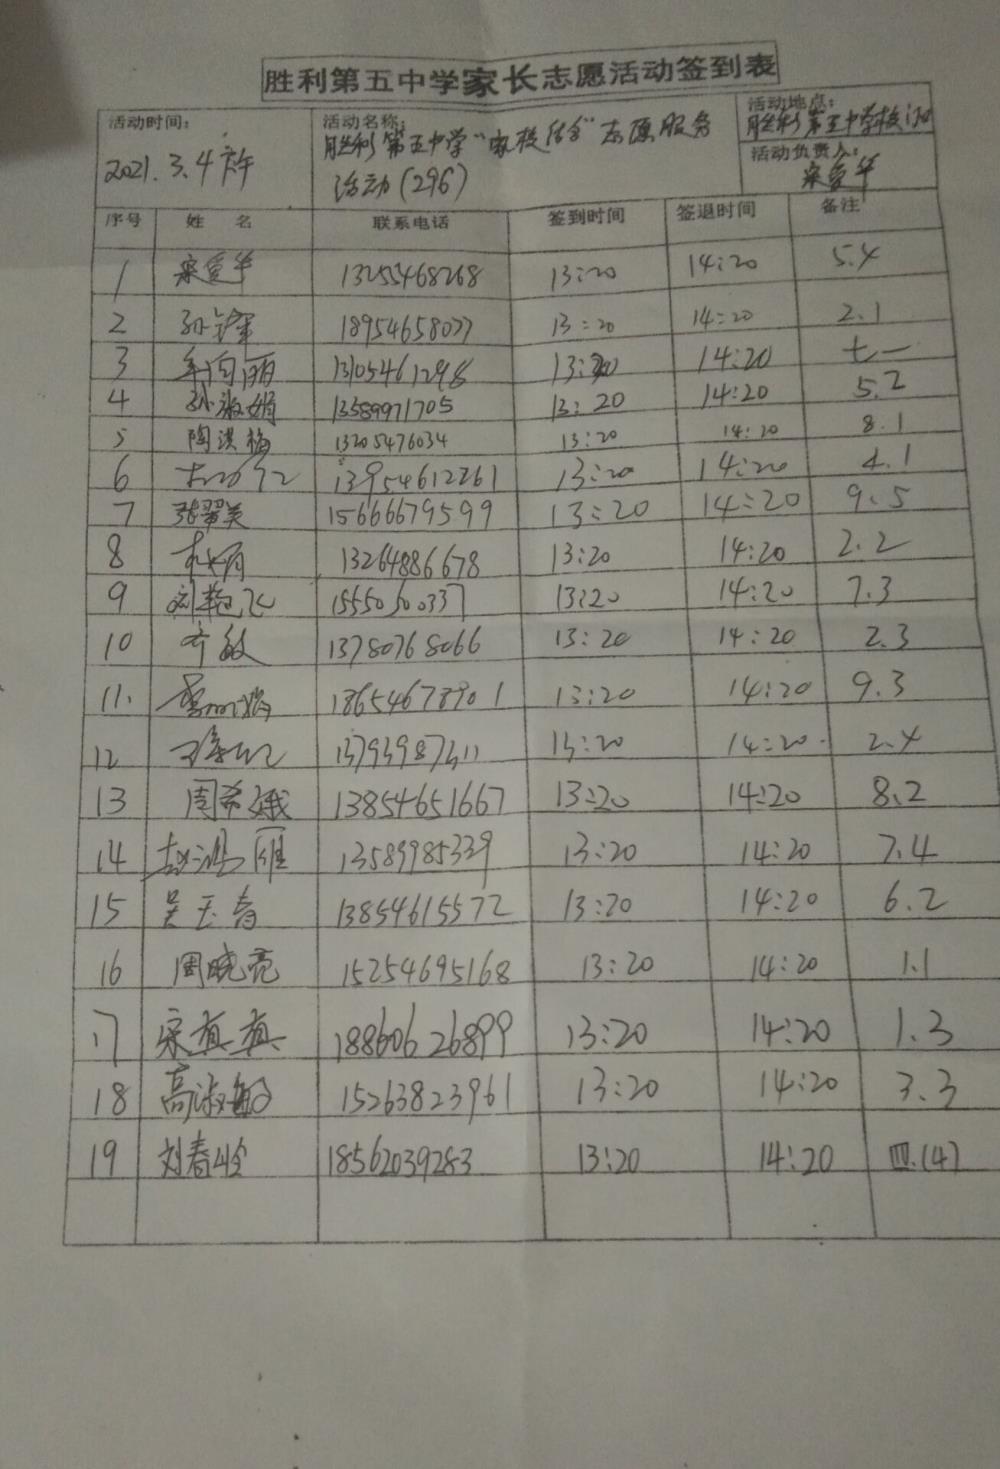 胜利第五中学家长志愿活动签到表
活动时间：
2021.3.4下午
活动名称：
胜利第五中学“家校结合”志愿服务
活动(296)
活动地点：
胜利第五中学校门口
活动负责人：
宋爱华
序号 姓 名 联系电话 签到时间 签退时间 备注
1 宋爱华 13255468268 13:20 14:20 5.4
2 18954658077 13:20 14:20 2.1
3 牟向丽 13105461298 13:20 14:20 七一
4 孙淑娟 13589971705 13:20 14:20 5.2
5 陶洪梅 13205476034 13:20 14:20 8.1
6 13954612261 13:20 14:20 4.1
7 张翠美 15666679599 13:20 14:20 9.5
8 13264886678 13:20 14:20 2.2
9 15550600337 13:20 14:20 7.3
10 齐敏 13780768066 13:20 14:20 2.3
11. 13:20 14:20 9.3
12 13:20 14:20 2.4
13 周希娥 13854651667 13:20 14:20 8.2
14 赵鸿雁 13589985339 13:20 14:20 7.4
15 吴玉春 13854615572 13:20 14:20 6.2
16 周晓亮 15254695168 13:20 14:20 1.1
17 宋真真 18860626899 13:20 14:20 1.3
18 高淑敏 15263823961 13:20 14:20 3.3
19 刘春玲 18562039283 13:20 14:20 四.(4)